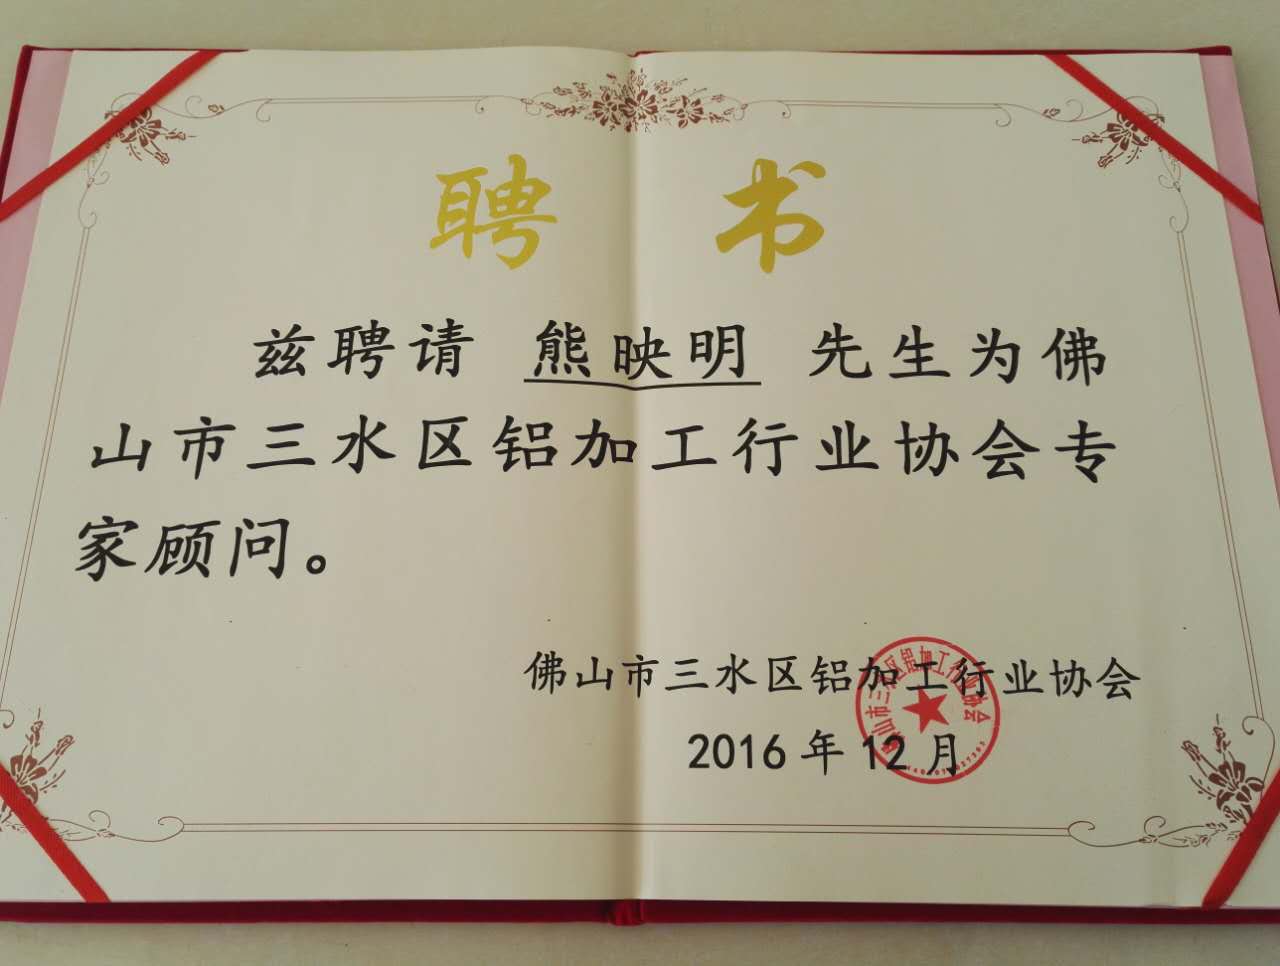 聘 书
兹聘请 熊映明 先生为佛
山市三水区铝加工行业协会专
家顾问。
佛山市三水区铝加工行业协会
2016年12月
山市三水区铝加工行业协会